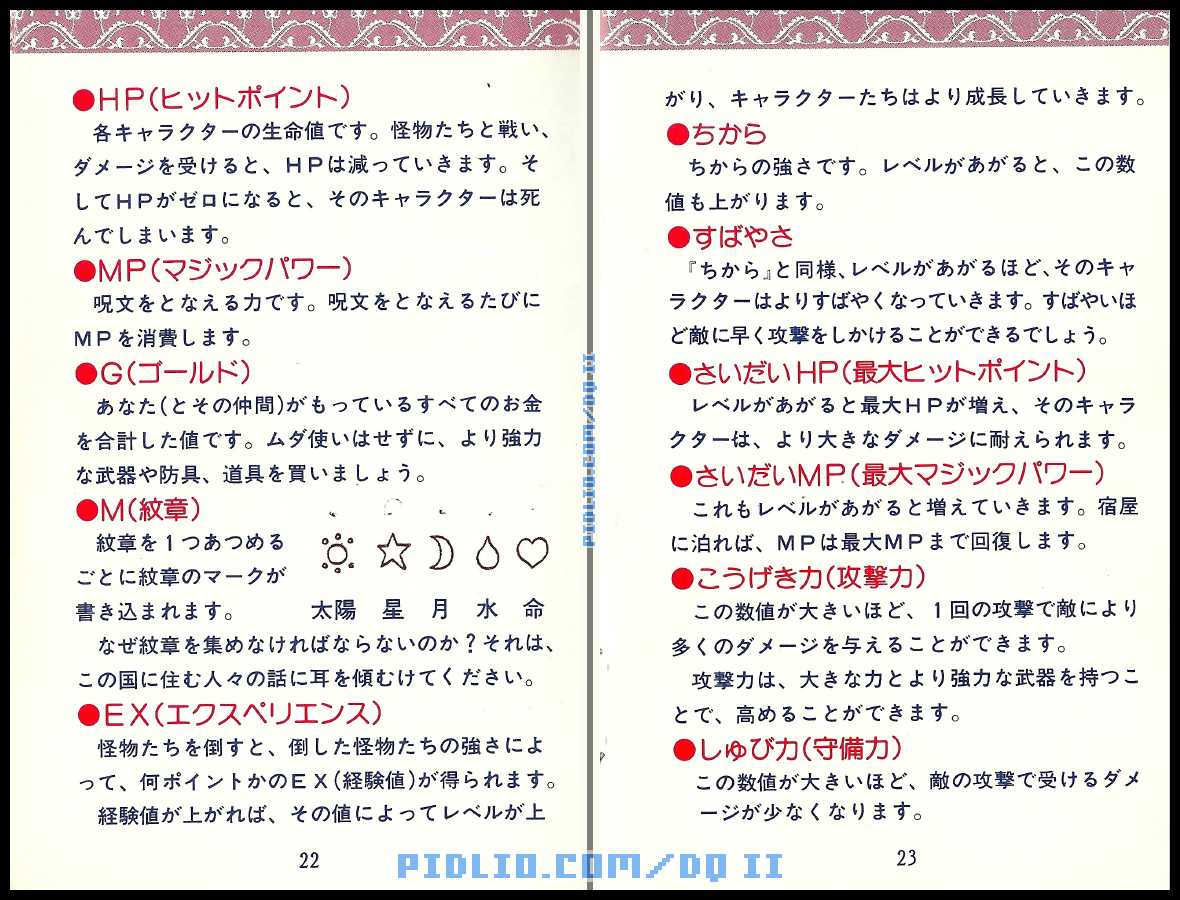 ●HP(ヒットポイント)
各キャラクターの生命値です。怪物たちと戦い、
ダメージを受けると、HPは減っていきます。そ
してHPがゼロになると、そのキャラクターは死
んでしまいます。
●MP(マジックパワー)
呪文をとなえる力です。呪文をとなえるたびに
MPを消費します。
●G(ゴールド)
あなた(とその仲間)がもっているすべてのお金
を合計した値です。ムダ使いはせずに、より強力
な武器や防具、道具を買いましょう。
●M(紋章)
紋章を1つあつめる
ごとに紋章のマークが
書き込まれます。
太陽 星 月 水 命
なぜ紋章を集めなければならないのか?それは、
この国に住む人々の話に耳を傾むけてください。
●EX(エクスペリエンス)
怪物たちを倒すと、倒した怪物たちの強さによ
って、何ポイントかのEX(経験値)が得られます。
経験値が上がれば、その値によってレベルが上
22
がり、キャラクターたちはより成長していきます。
●ちから
ちからの強さです。レベルがあがると、この数
値も上がります。
●すばやさ
『ちから』と同様、レベルがあがるほど、そのキャ
ラクターはよりすばやくなっていきます。すばやいほ
ど敵に早く攻撃をしかけることができるでしょう。
●さいだいHP(最大ヒットポイント)
レベルがあがると最大HPが増え、そのキャラ
クターは、より大きなダメージに耐えられます。
●さいだいMP(最大マジックパワー)
これもレベルがあがると増えていきます。宿屋
に泊れば、MPは最大MPまで回復します。
●こうげき力(攻撃力)
この数値が大きいほど、1回の攻撃で敵により
多くのダメージを与えることができます。
攻撃力は、大きな力とより強力な武器を持つこ
とで、高めることができます。
●しゅび力(守備力)
この数値が大きいほど、敵の攻撃で受けるダメ
ージが少なくなります。
23
PIDLIO.COM/DQ II
PIDLIO.COM/DQ II